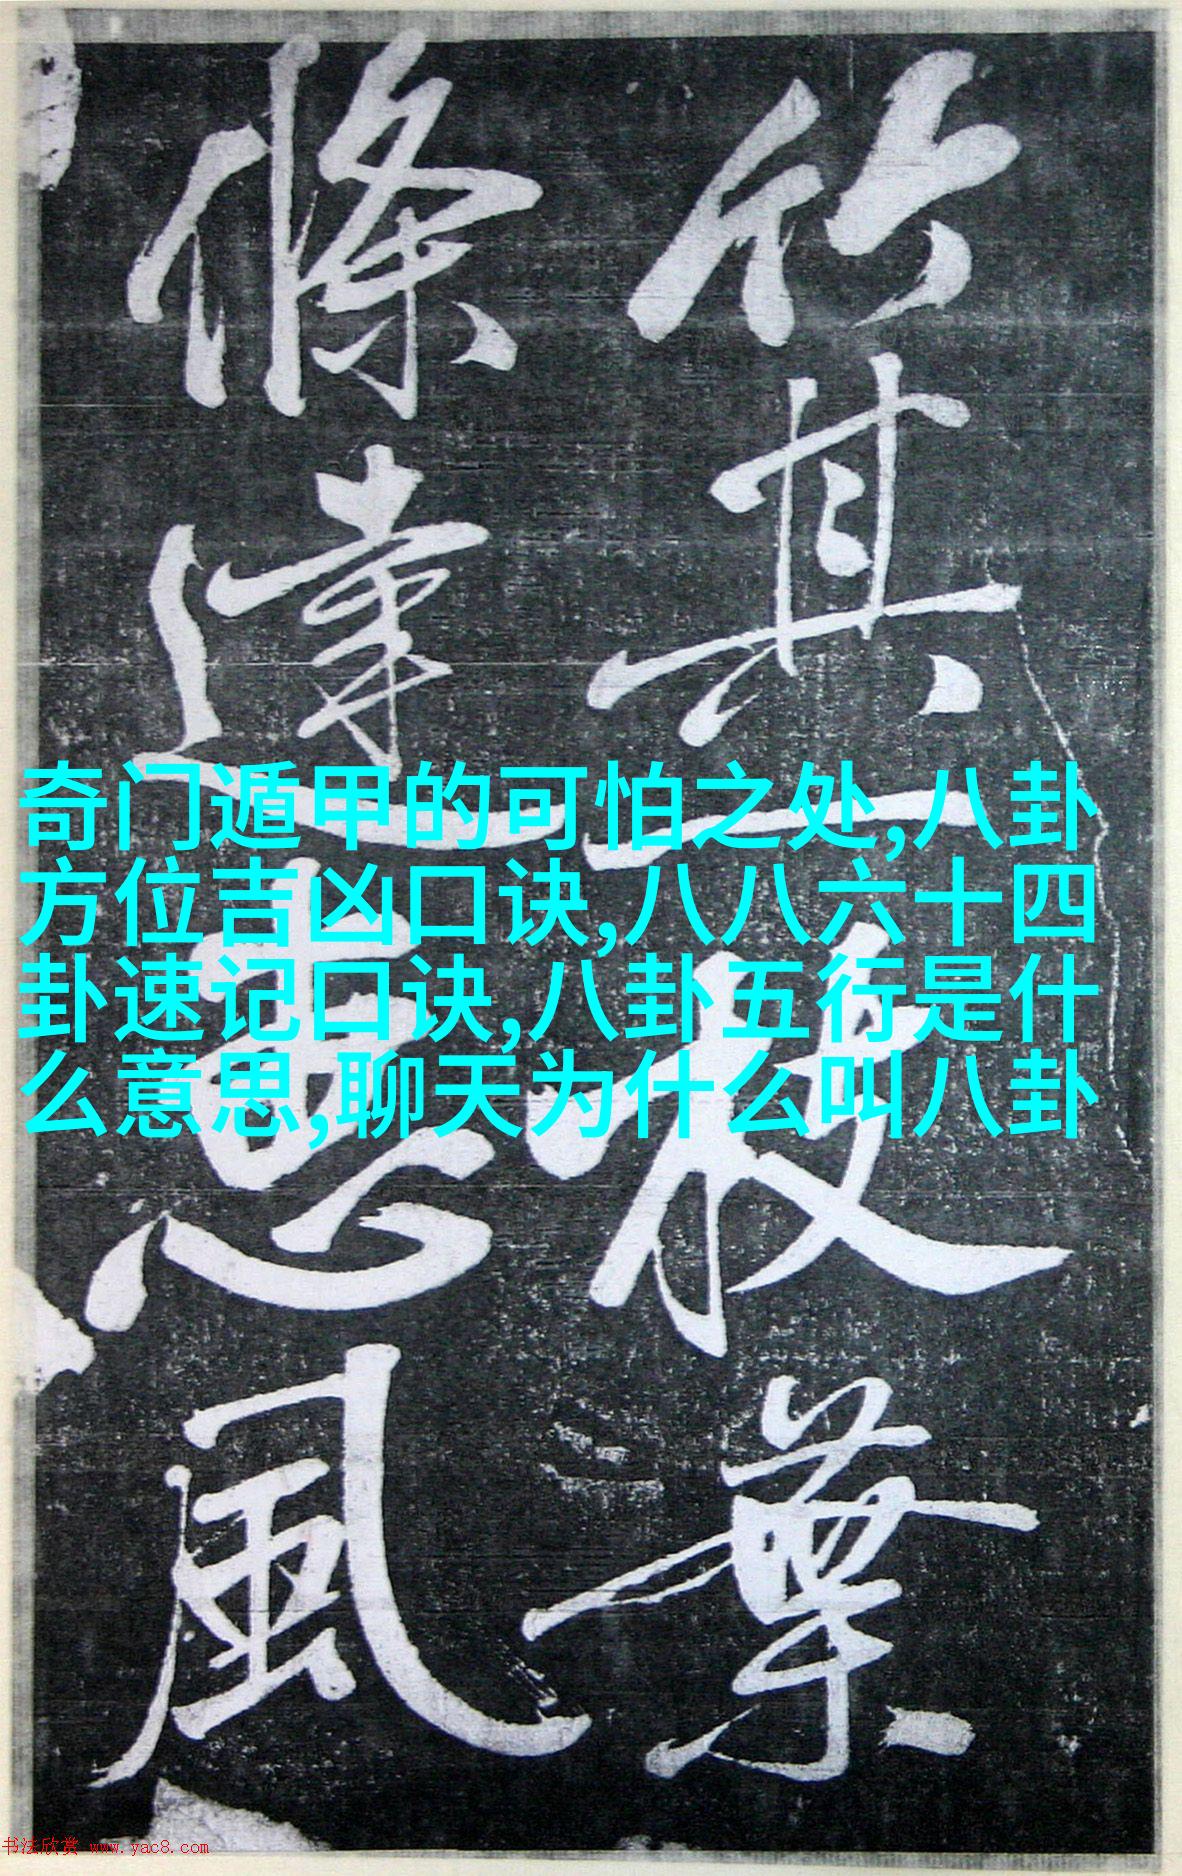 竹其一枝葉
條達惠風
奇门遁甲的可怕之处,八卦
方位吉凶口诀,八八六十四
卦速记口诀,八卦五行是什
么意思,聊天为什么叫八卦
书法欣赏 www.yac8.com